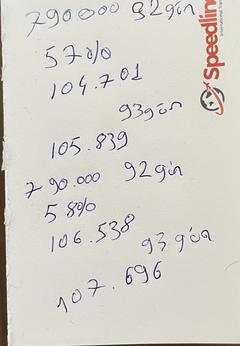 790000 92gün
57%
104.701
93gün
105.839
790.000 92gün
58%
106.538
93 gün
107.696
Speedlin